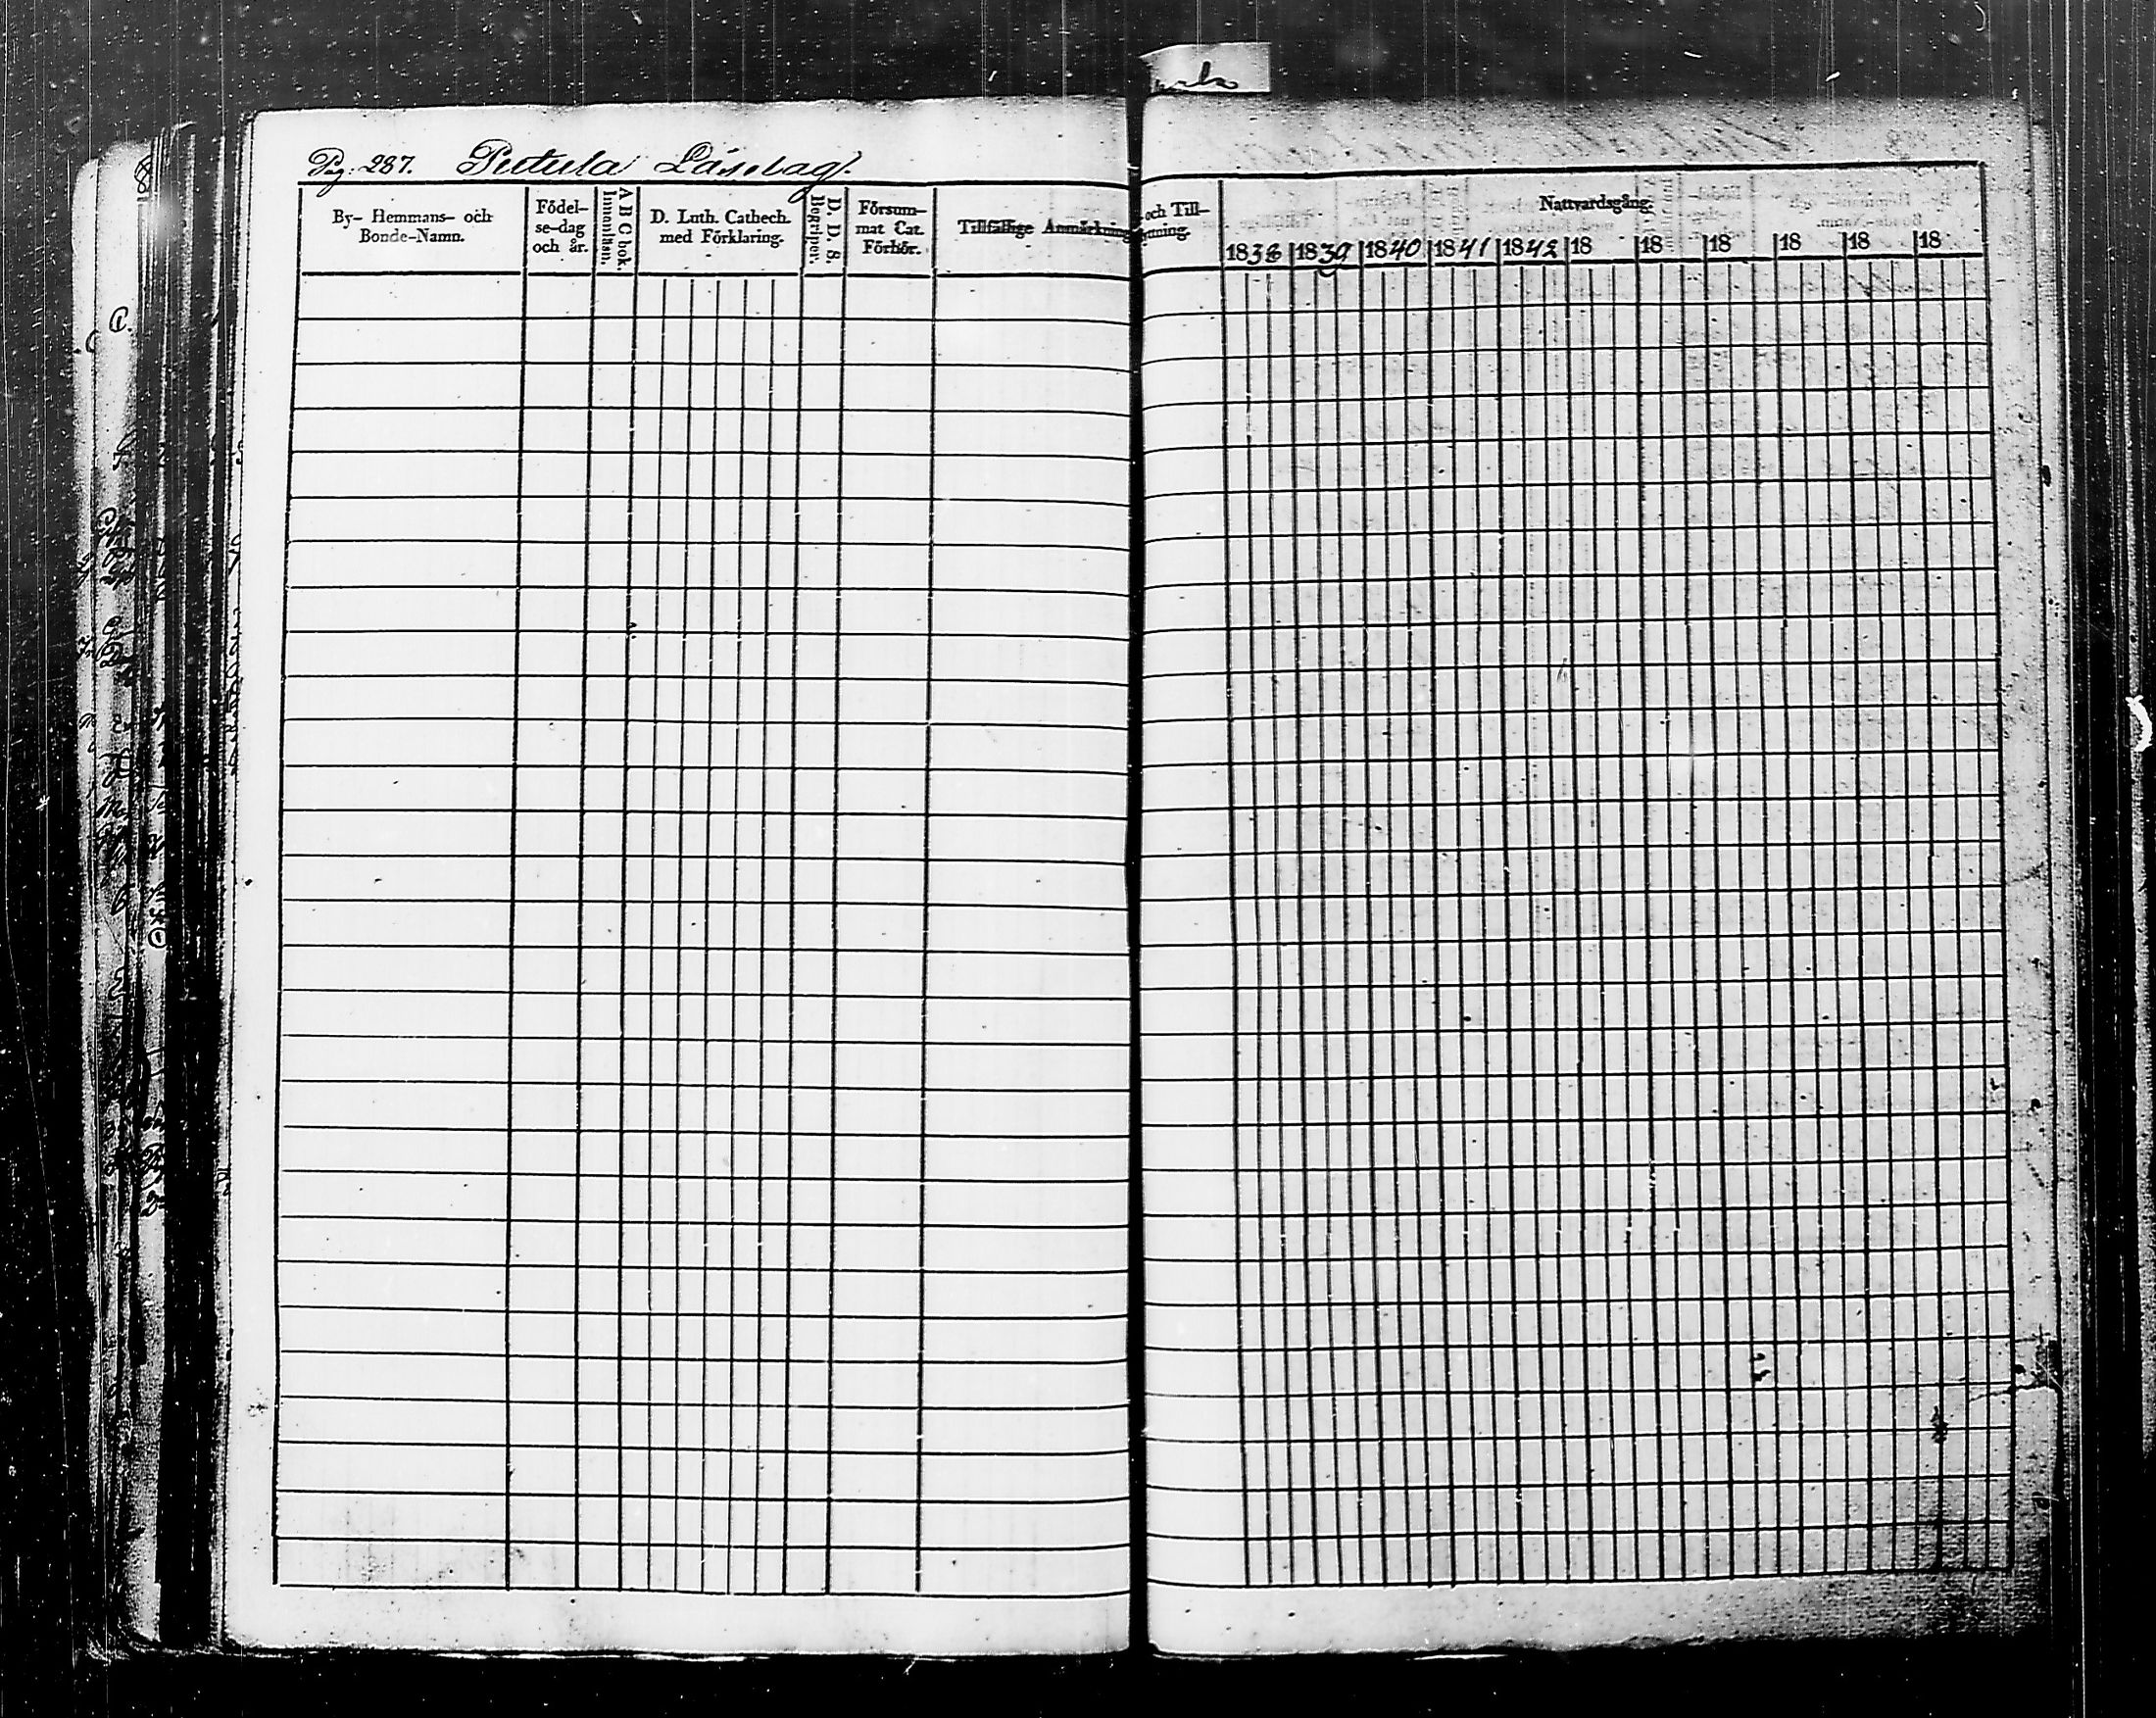 Pag: 287. Putula Läselag.
By- Hemmans- och
Bonde-Namn.
Födel-
se-dag
och år.
A B C bok.
Innanläsn.
D. Luth. Cathech.
med Förklaring.
D. D. S.
Begriper.
Försum-
mat Cat.
Förhör.
Tillfällige Anmärkning
och Till-
ytning.
Nattvardsgång.
1838 1839 1840 1841 1842 18 18 18 18 18 18